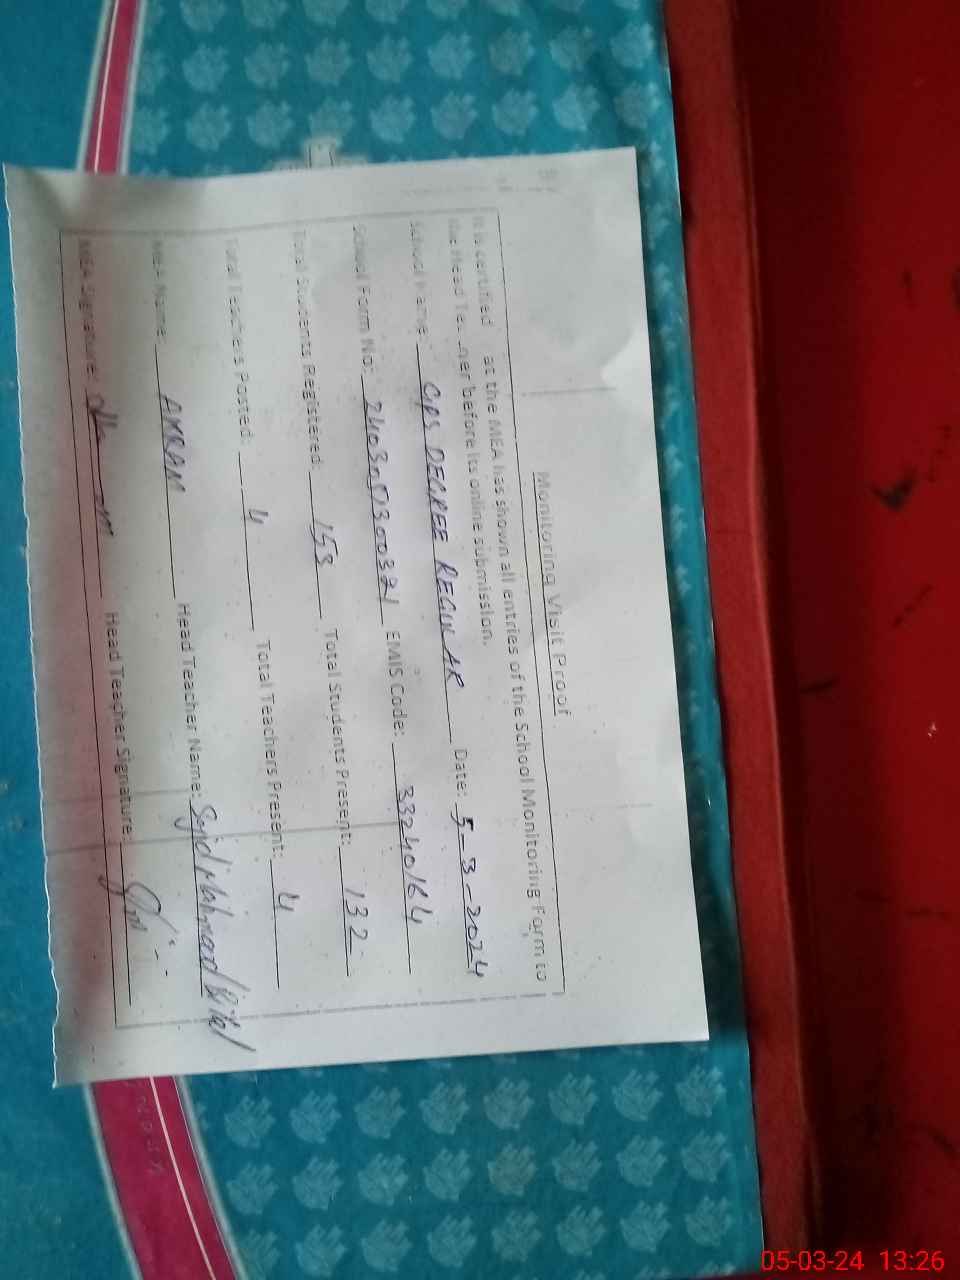 Monitoring Visit Proof
It is certified at the MEA has shown all entries of the School Monitoring Form to
the Head Tea ner before its online submission.
School Name: GPS DEGREE REGULAR Date: 5-3-2024
School Form No: EMIS Code: 33240164
Total Students Registered: 158 Total Students Present: 132
Total Teachers Posted: 4 Total Teachers Present: 4
MEA Name: AKRAM Head Teacher Name: Sajid Mahmood
MEA Signature: Head Teacher Signature:
05-03-24 13:26